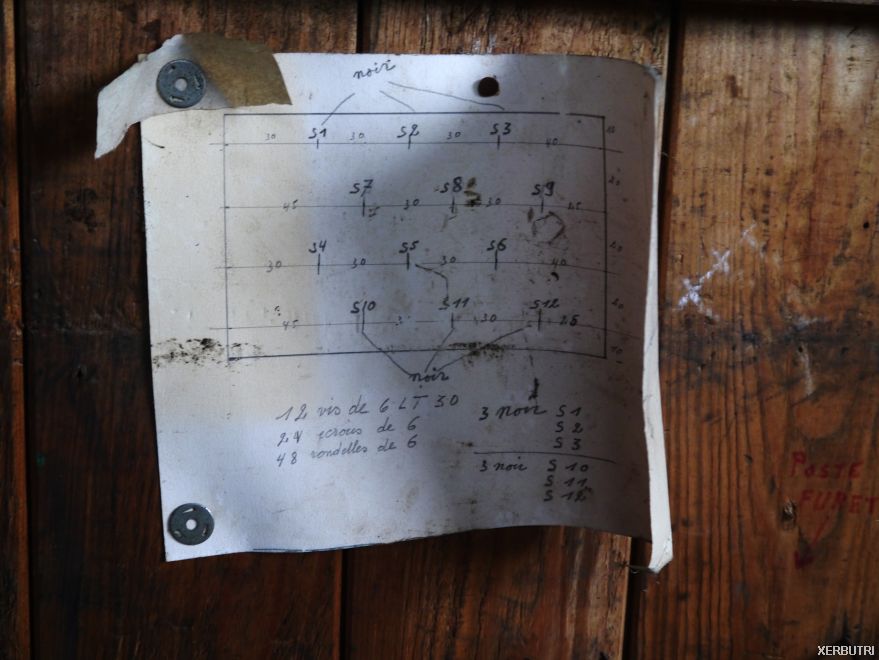 noir
30 S1 30 S2 30 S3 40
45 S7 30 S8 30 S9 25
30 S4 30 S5 30 S6 40
45 S10 S11 30 S12 25
noir
12 vis de 6 LT 30
24 ecrous de 6
48 rondelles de 6
3 noir S1
S2
S3
3 noir S10
S11
S12
POSTE
FURET
XERBUTRI